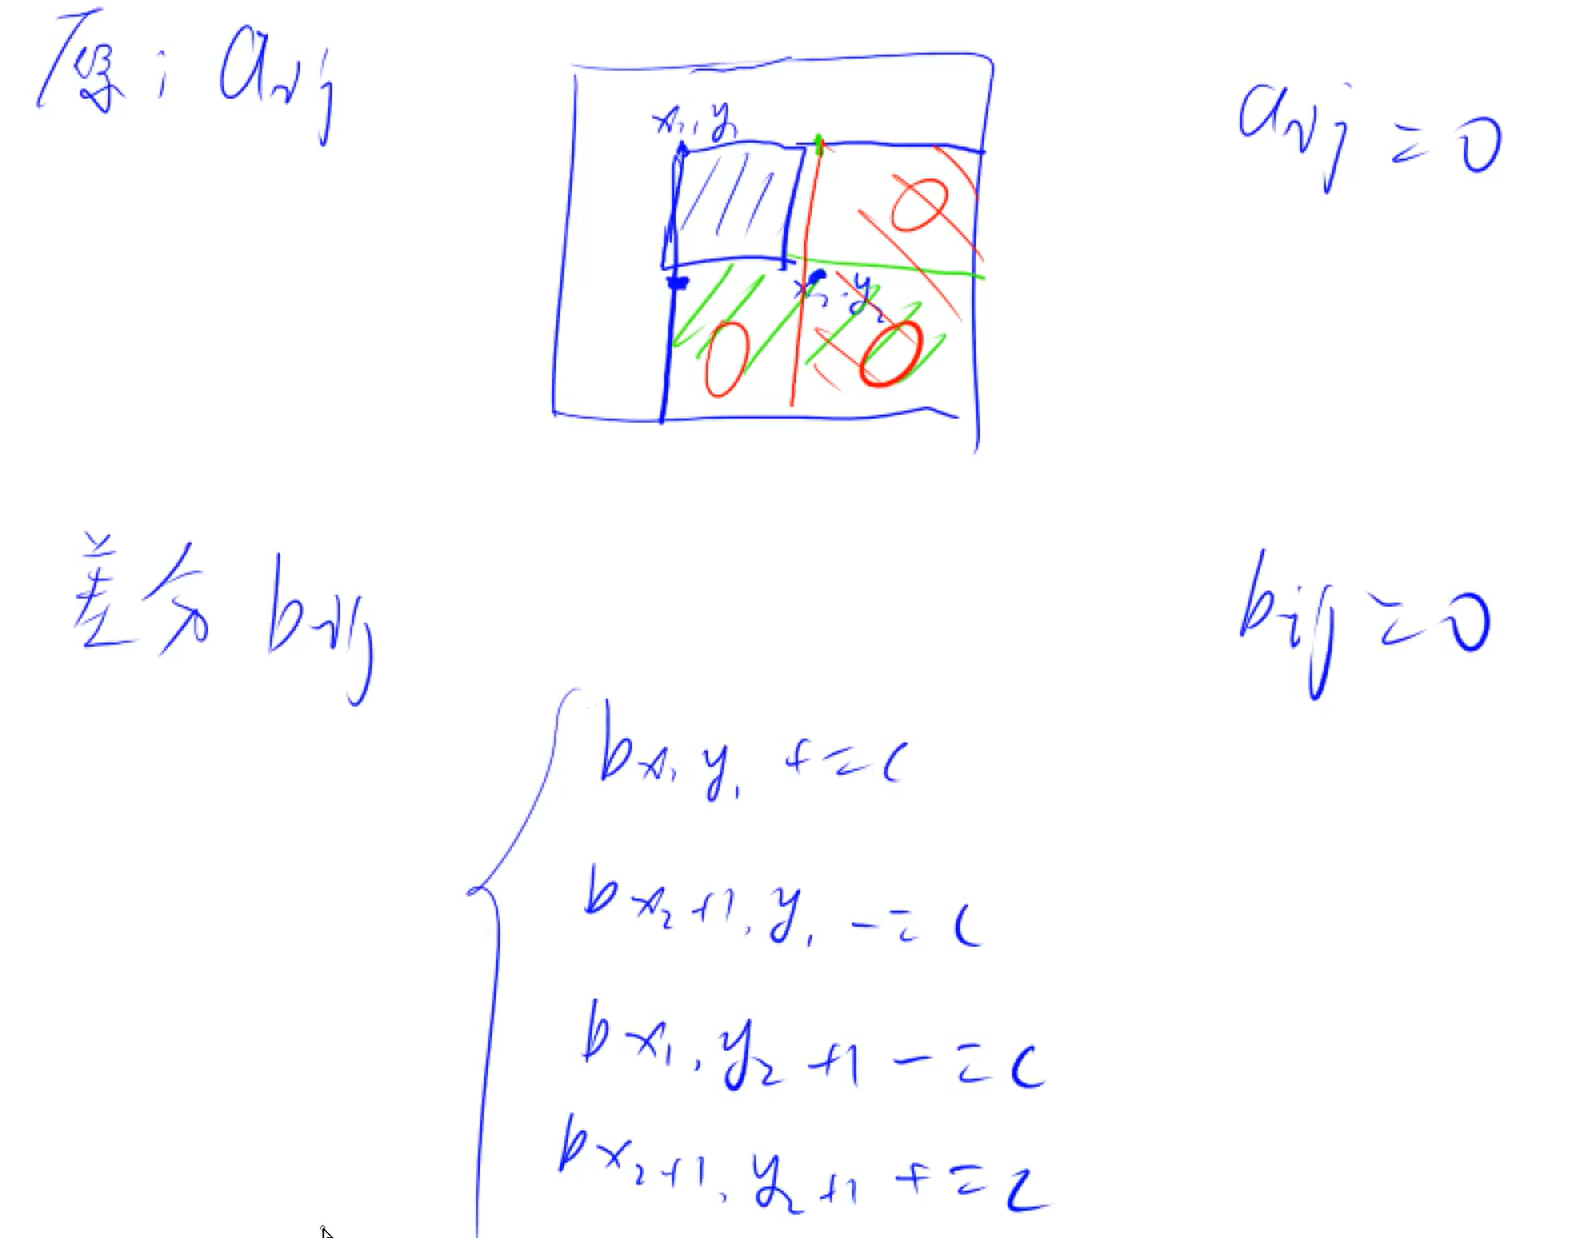 原: aij
aij = 0
x1, y1
0
x2, y2
0
0
差分 bij
bij = 0
bx1 y1 += c
bx2+1, y1 -= c
bx1, y2+1 -= c
bx2+1, y2+1 += c